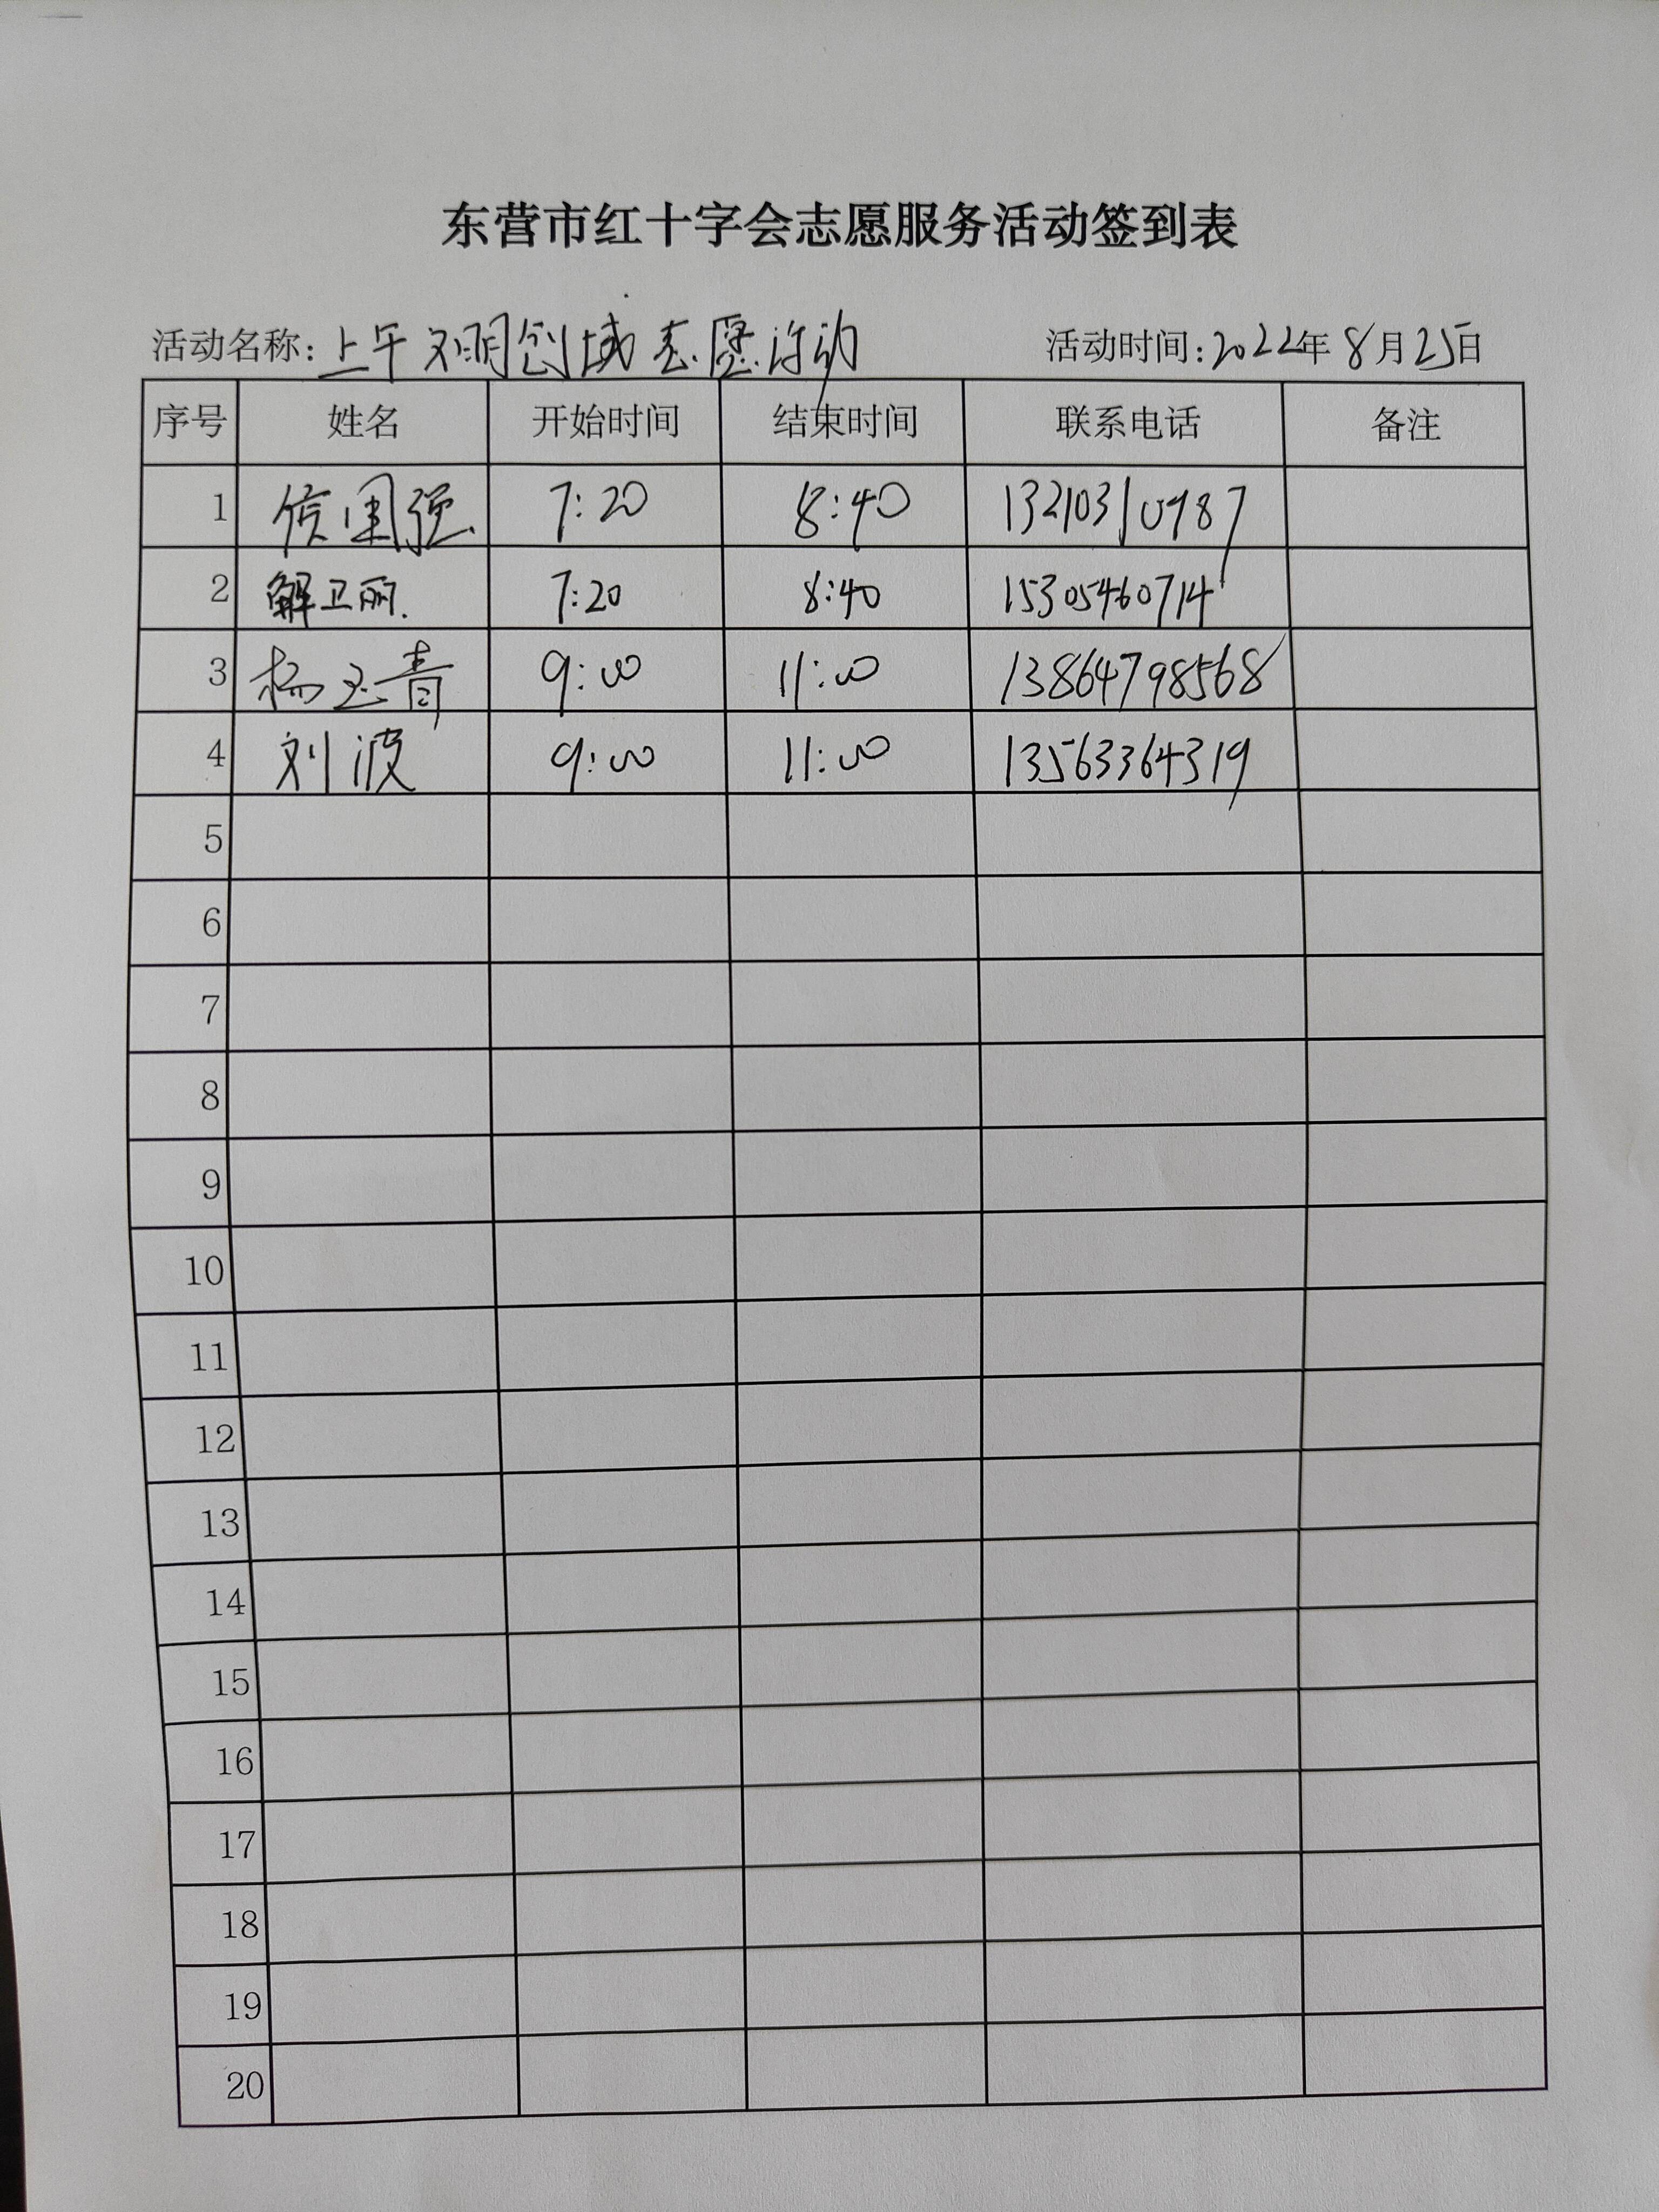 东营市红十字会志愿服务活动签到表
活动名称：上午文明创城志愿活动 活动时间：2022年8月25日
序号 姓名 开始时间 结束时间 联系电话 备注
1 侯国强 7:20 8:40 13210310987
2 解卫丽. 7:20 8:40 15305460714
3 杨玉青 9:00 11:00 13864798568
4 刘波 9:00 11:00 13563364319
5
6
7
8
9
10
11
12
13
14
15
16
17
18
19
20